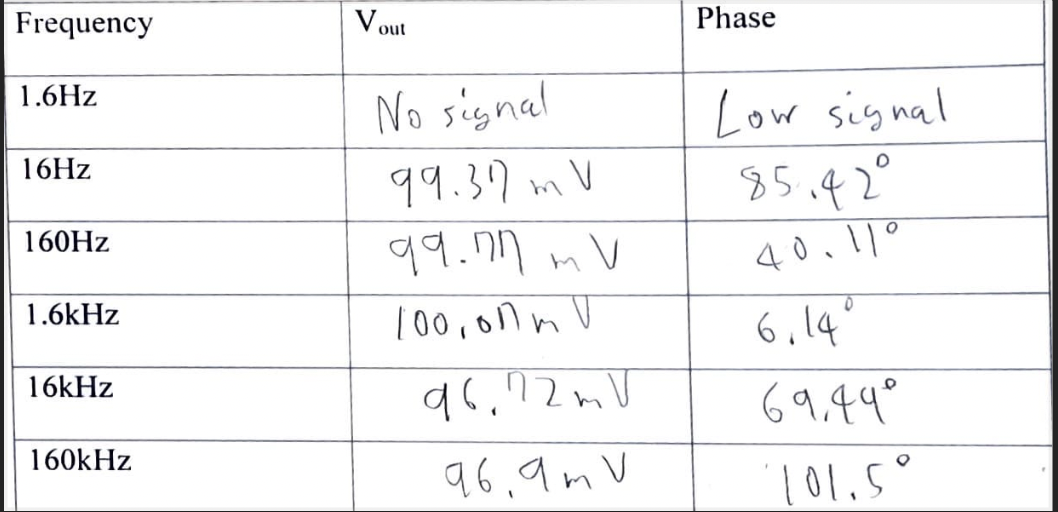 Frequency Vout Phase
1.6Hz No signal Low signal
16Hz 99.37 mV 85.42°
160Hz 99.77 mV 40.11°
1.6kHz 100.07 mV 6.14°
16kHz 96.72 mV 69.49°
160kHz 96.9 mV 101.5°